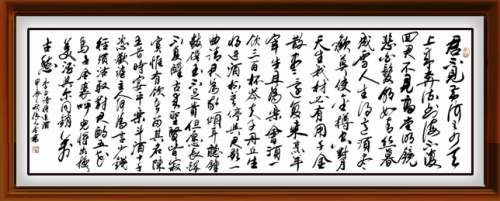 君不见黄河之水天
上来奔流到海不复
回君不见高堂明镜
悲白发朝如青丝暮
成雪人生得意须尽
欢莫使金樽空对月
天生我材必有用千金
散尽还复来烹羊
宰牛且为乐会须一
饮三百杯岑夫子丹丘生
将进酒杯莫停与君歌一
曲请君为我倾耳听钟
鼓馔玉不足贵但愿长醉
不复醒古来圣贤皆寂
寞惟有饮者留其名陈
王昔时宴平乐斗酒十千
恣欢谑主人何为言少钱
径须沽取对君酌五花
马千金裘呼儿将出换
美酒与尔同销万
古愁
李白诗将进酒